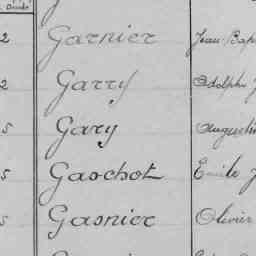 2 Garnier Jean Bap
2 Garry Adolphe J
5 Gary Augustin
5 Gaschot Emile J
5 Gasnier Olivier